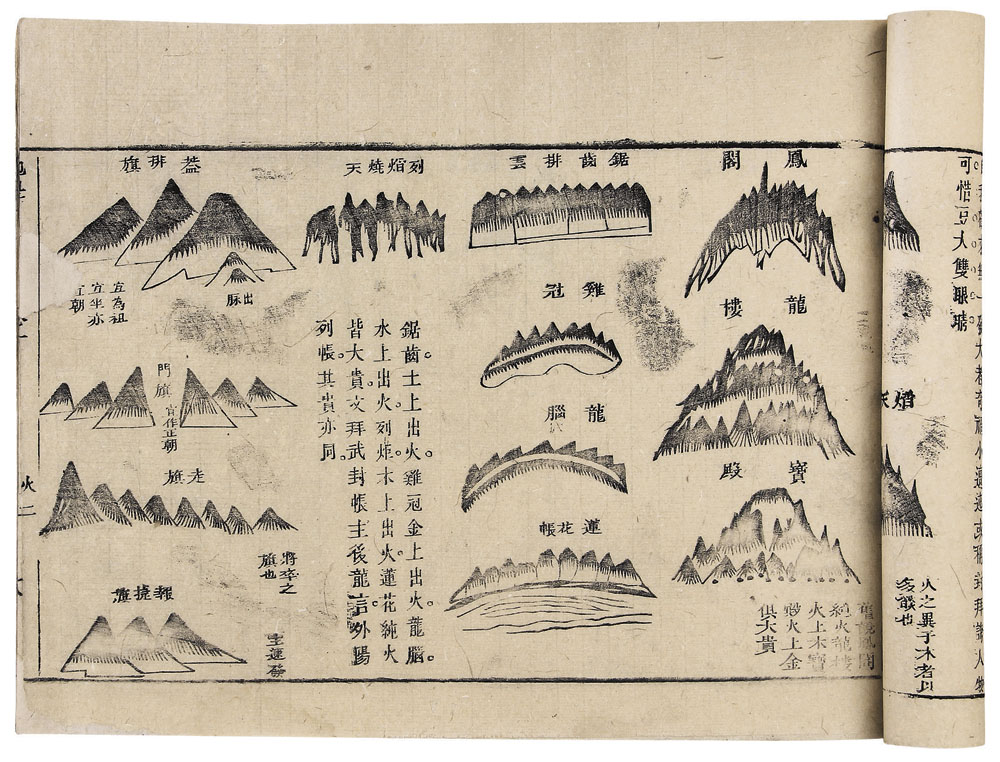 可惜豆大雙眼睛
火之異于木者以
鳳閣
龍樓
寶殿
鳳閣
純火龍樓
火上木寶
殿火上金
俱大貴
鋸齒排雲
雞冠
龍腦
蓮花帳
列焰燒天
鋸齒土上出火。雞冠金上出火。龍腦。
水上出火。列炸。木上出火。蓮花純火
皆大貴。文拜武封。帳主後龍。言外陽
列帳。其貴亦同。
葢排旗
出脉
宜為祖
宜坐亦
宜朝
門旗
宜作正朝
走旗
將卒之
旗也
報捷旗
主運發
火二